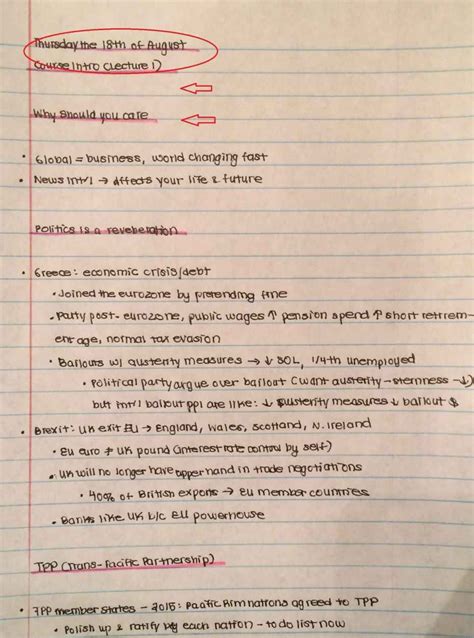 Thursday the 18th of August
Course Intro (Lecture 1)
Why should you care
• Global = business, world changing fast
• News Int'l → affects your life & future
Politics is a reveberation
• Greece: economic crisis/debt
• Joined the eurozone by pretending fine
• Party post-eurozone, public wages ↑ pension spend ↑ short retirem-
ent age, normal tax evasion
• Bailouts w/ austerity measures → ↓ SOL, 1/4th unemployed
• Political party argue over bailout (want austerity - sternness - ↓)
but int'l bailout ppl are like: ↓ austerity measures ↓ bailout $
• Brexit: UK exit EU → England, Wales, Scotland, N. Ireland
• EU euro ≠ UK pound (interest rate control by self)
• UK will no longer have upper hand in trade negotiations
• 40% of British exports → EU member countries
• Banks like UK b/c EU powerhouse
TPP (Trans-Pacific Partnership)
• TPP member states - 2015: Pacific Rim nations agreed to TPP
• Polish up & ratify by each nation - to do list now